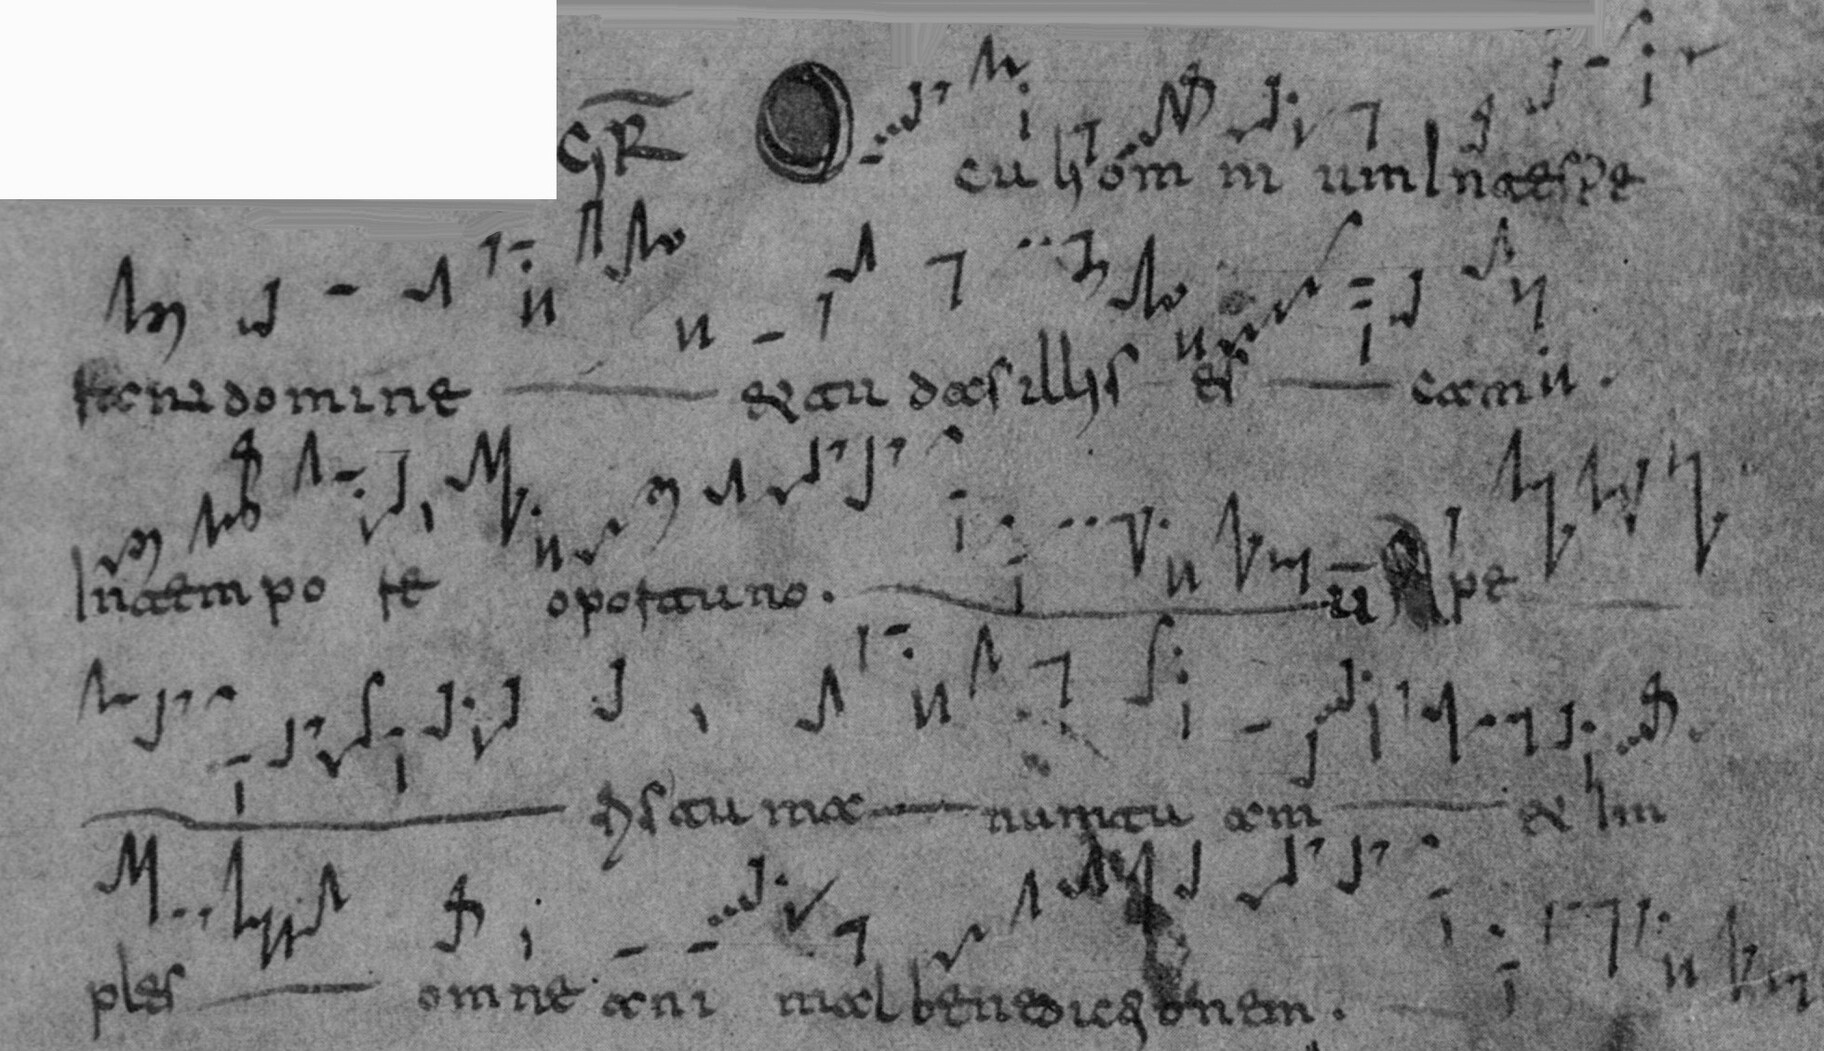 GR O cu hom in um In te spe
rant domine et tu das illis es cam in
In tem po re oportuno. V Ape
ris tu ma num tu am et im
ples omne ani mal benedictionem.